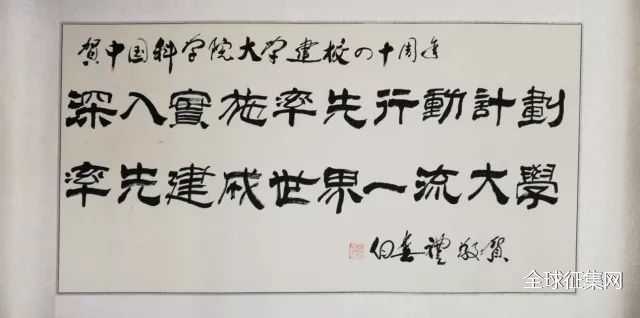 贺中国科学院大学建校四十周年
深入實施率先行動計劃
率先建成世界一流大學
白春禮敬贺
全球征集网